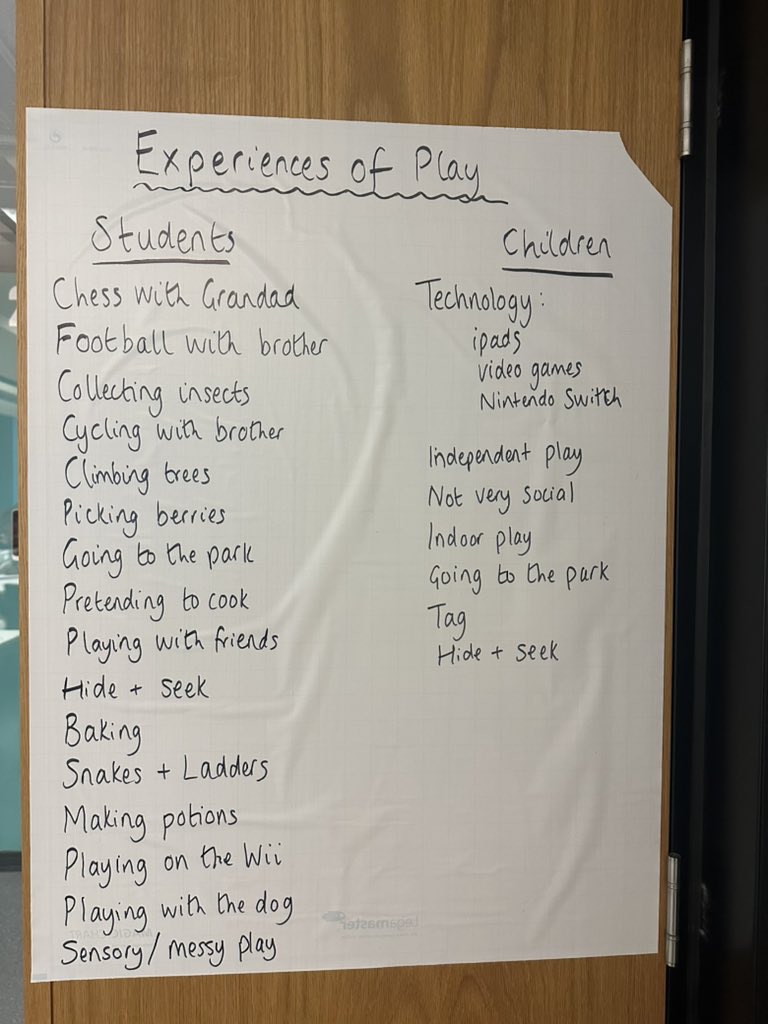 Experiences of Play
Students
Chess with Grandad
Football with brother
Collecting insects
Cycling with brother
Climbing trees
Picking berries
Going to the park
Pretending to cook
Playing with friends
Hide + seek
Baking
Snakes + Ladders
Making potions
Playing on the Wii
Playing with the dog
Sensory/messy play
Children
Technology:
ipads
video games
Nintendo Switch
Independent play
Not very social
Indoor play
Going to the park
Tag
Hide + seek
Legamaster